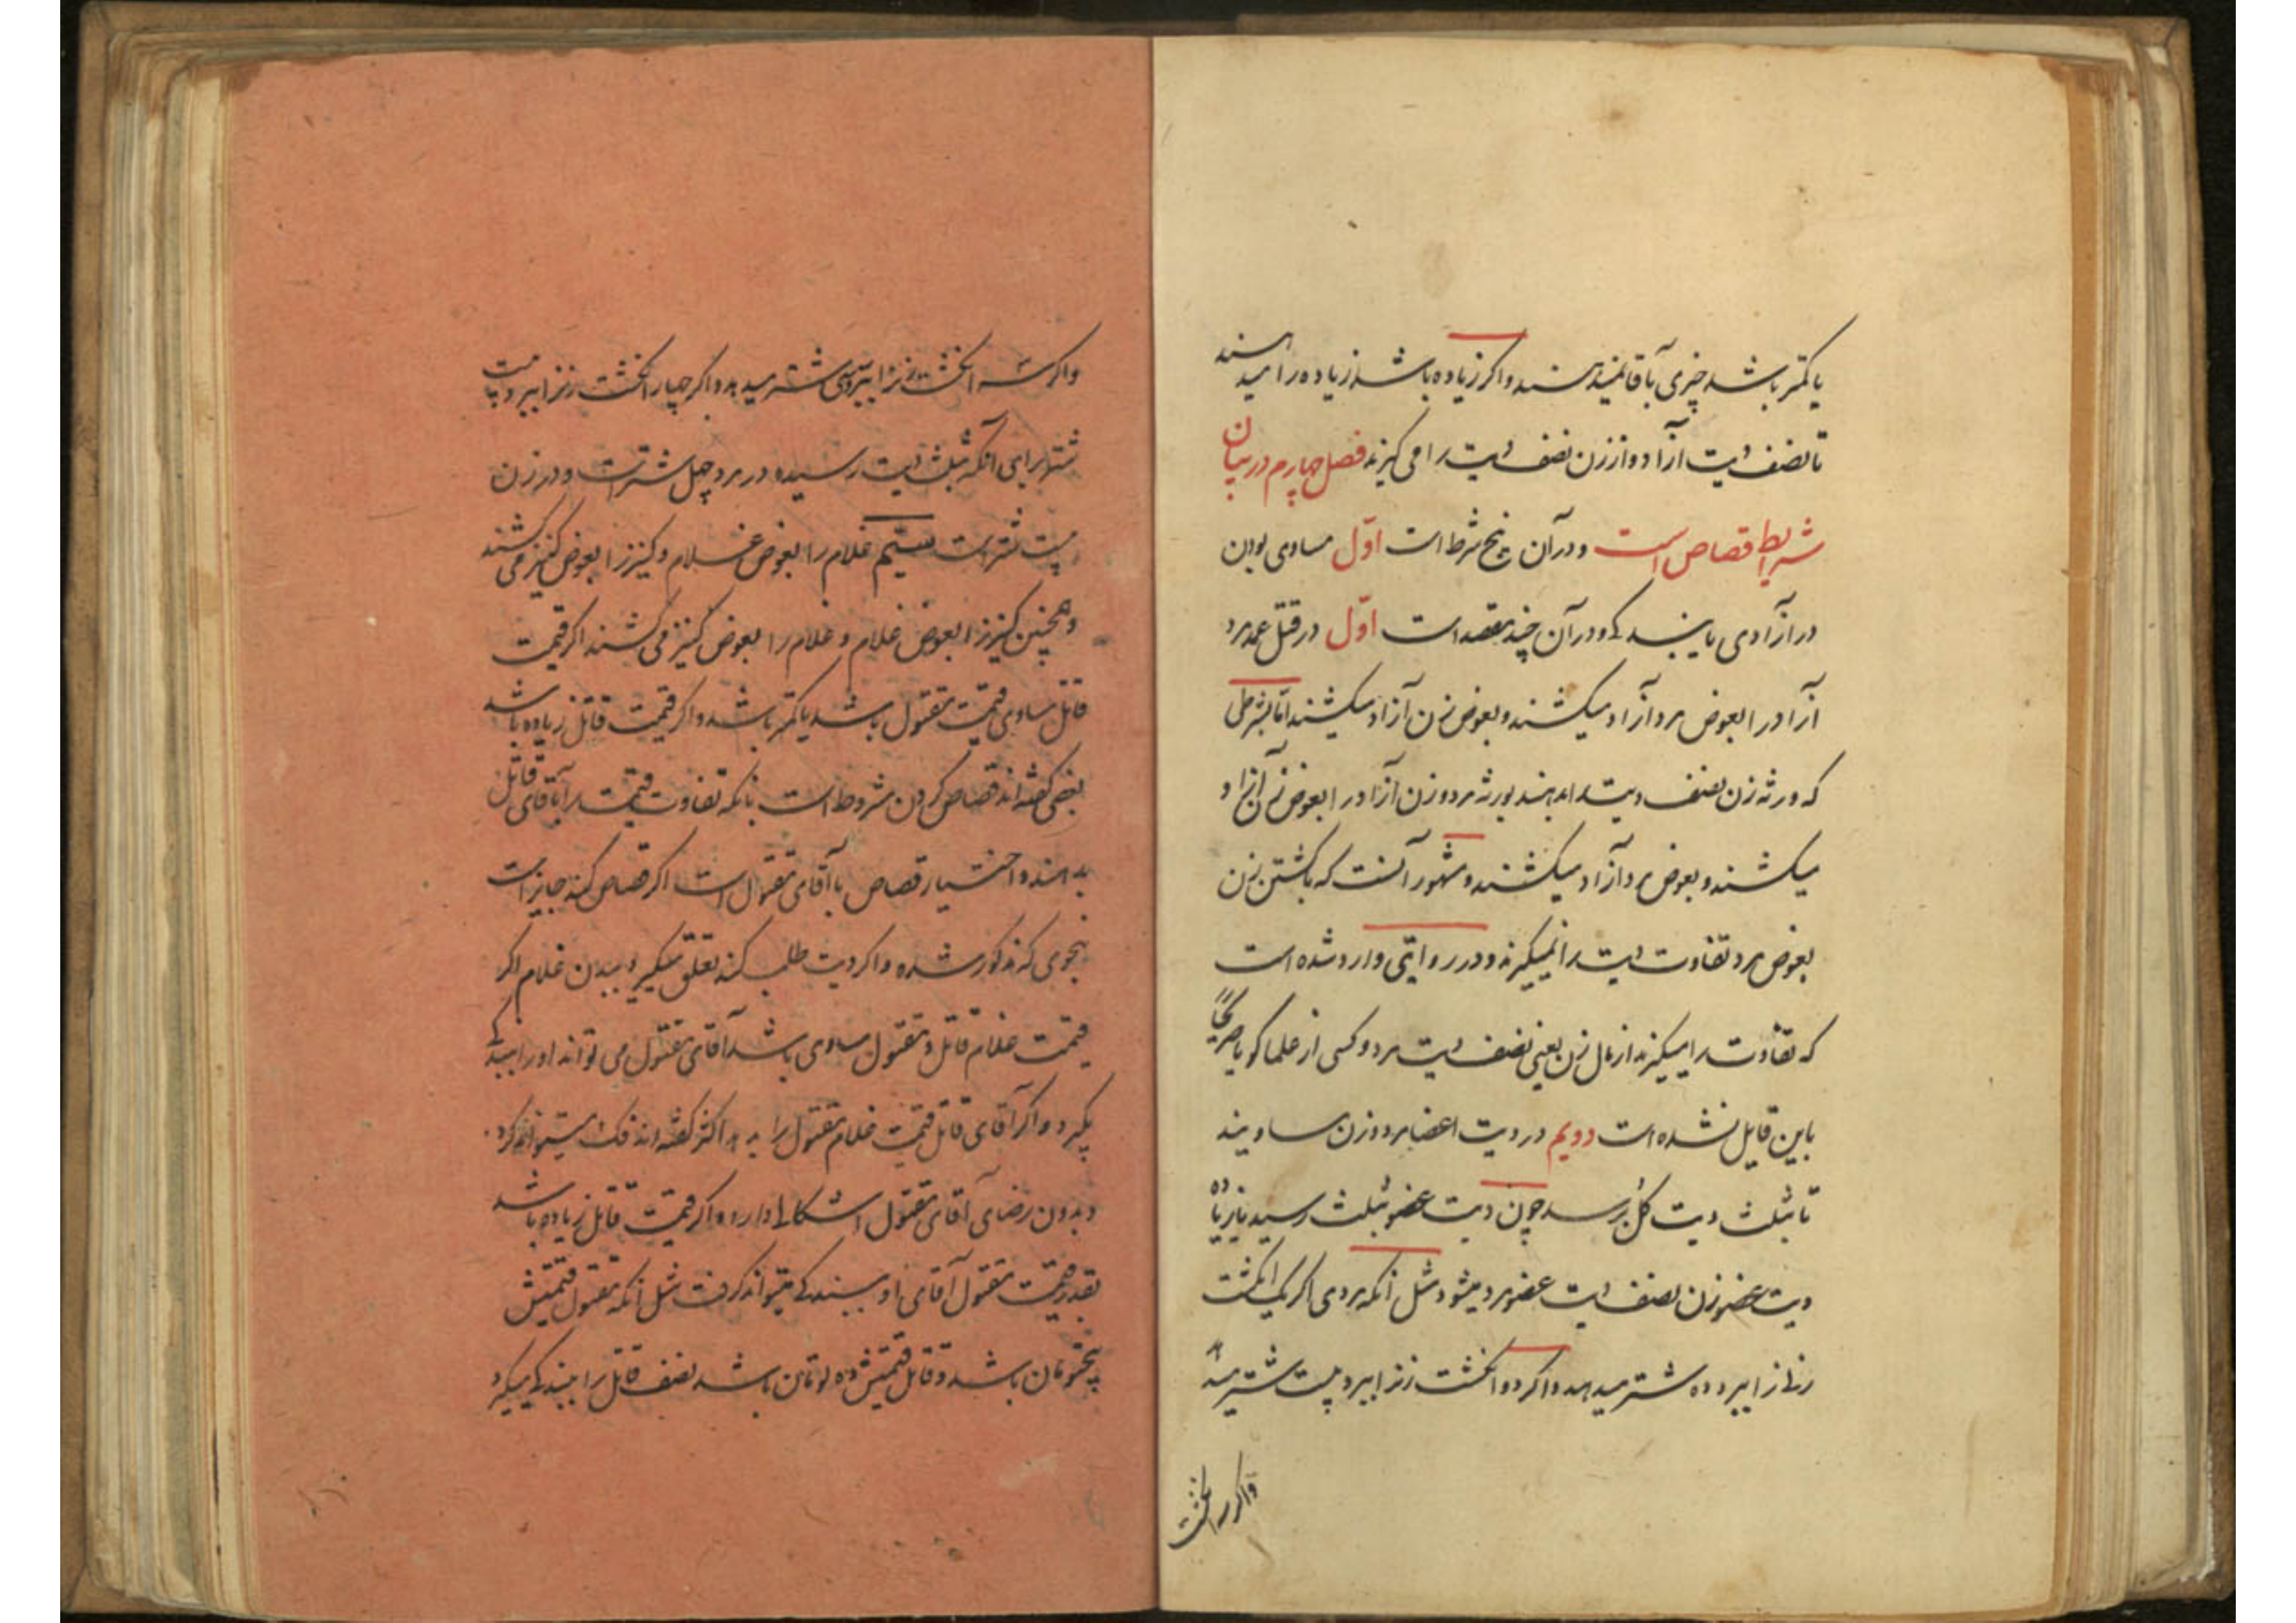 یا کمتر باشد چیزی بآقا نمیدهند و اکر زیاده باشد زیاده را میدهند
تا نصف دیت آزاد و از زن نصف دیت را می کیرند فصل چهارم در بیان
شرایط قصاص است و در آن پنج شرط است اوّل مساوی بودن
در آزادی یا بندکی و در آن چند مقصد است اوّل در قتل عمد مرد
آزاد را بعوض مرد آزاد میکشند و بعوض زن آزاد میکشند امّا بشرطی
که ورثه زن نصف دیت را بدهند بورثه مرد و زن آزاد را بعوض زن آزاد
میکشند و بعوض مرد آزاد میکشند و مشهور آنست که با کشتن زن
بعوض مرد تفاوت دیت را نمیکیرند و در روایتی وارد شده است
که تفاوت را میکیرند از مال زن یعنی نصف دیت مرد و کسی از علما کویا صریحًا
باین قایل نشده است دویم در دیت اعضا مرد و زن مساویند
تا بثلث دیت کل برسد چون دیت عضو بثلث رسید یا زیاده
دیت عضو زن نصف دیت عضو مرد میشود مثل آنکه مردی اکر یک انکشت
زنی را ببرد ده شتر میدهد و اکر دو انکشت زن را ببرد بیست شتر میدهد
و اکر سه انکشت
و اکر سه انکشت زن را ببرد سی شتر میدهد و اکر چهار انکشت زن را ببرد بیست
شتر برای آنکه بثلث دیت رسیده در مرد چهل شتر است و در زن
بیست شتر است سیّم غلام را بعوض غلام و کنیز را بعوض کنیز می کشند
و همچنین کنیز را بعوض غلام و غلام را بعوض کنیز می کشند اکر قیمت
قاتل مساوی قیمت مقتول باشد یا کمتر باشد و اکر قیمت قاتل زیاده باشد
بعضی کفته اند قصاص کردن مشروط است بانکه تفاوت قیمت را بآقای قاتل
بدهند و اختیار قصاص با آقای مقتول است اکر قصاص کند جایز است
بنحوی که مذکور شده و اکر دیت طلب کند تعلق میکیرد ببدن غلام اکر
قیمت غلام قاتل و مقتول مساوی باشد آقای مقتول می تواند او را ببندکی
بکیرد و اکر آقای قاتل قیمت غلام مقتول را بدهد اکثر کفته اند فک میتواند کرد
و بدون رضای آقای مقتول اشکالی دارد و اکر قیمت قاتل زیاده باشد
بقدر قیمت مقتول آقای او ببندکی میتواند کرفت مثل آنکه مقتول قیمتش
پنج تومان باشد و قاتل قیمتش ده تومان باشد نصف قاتل را ببندکی میکیرد